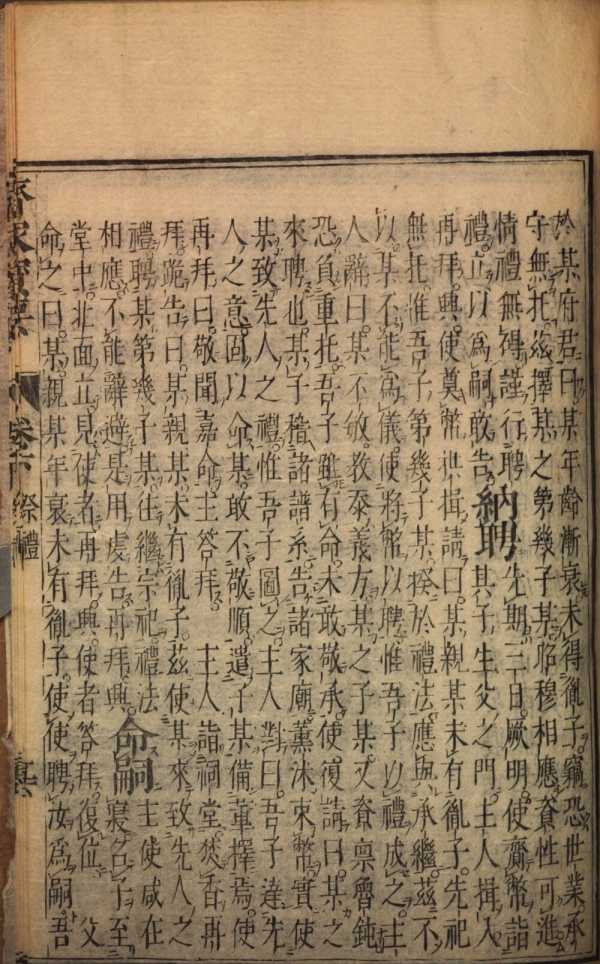 於某府君曰某年齡漸衰未得胤子竊恐世業承
守無托茲擇某之第幾子某昭穆相應資性可進
情禮無得謹行聘 納聘 先期三日厥明使齎幣詣
禮立以為嗣敢告 其子生父之門主人揖入
再拜興使奠幣祇揖請曰某親某未有胤子先祀
無托惟吾子第幾子某揆於禮法應與承繼茲不
以某不能為儀使將幣以聘惟吾子以禮成之主
人辭曰某不敏教忝義方某之子某又資稟魯鈍
恐負重托吾子雖有命未敢敬承使復請曰某之
來聘也某子稽諸譜系告諸家廟薰沐束幣實使
某致先人之禮惟吾子圖之主人對曰吾子達先
人之意固以命某敢不敬順遣子某備葷擇焉使
再拜曰敬聞嘉命主答拜 主人詣祠堂焚香再
拜跪告曰某親某未有胤子茲使某來致先人之
禮聘某第幾子某往繼宗祀禮法
相應不能辭避是用虔告再拜興 命嗣 主使咸在 寢召子至
堂中北面立見使者再拜興使者答拜復位 父
命之曰某親某年衰未有胤子使使聘汝為嗣吾
齊家寶要 卷下 祭禮